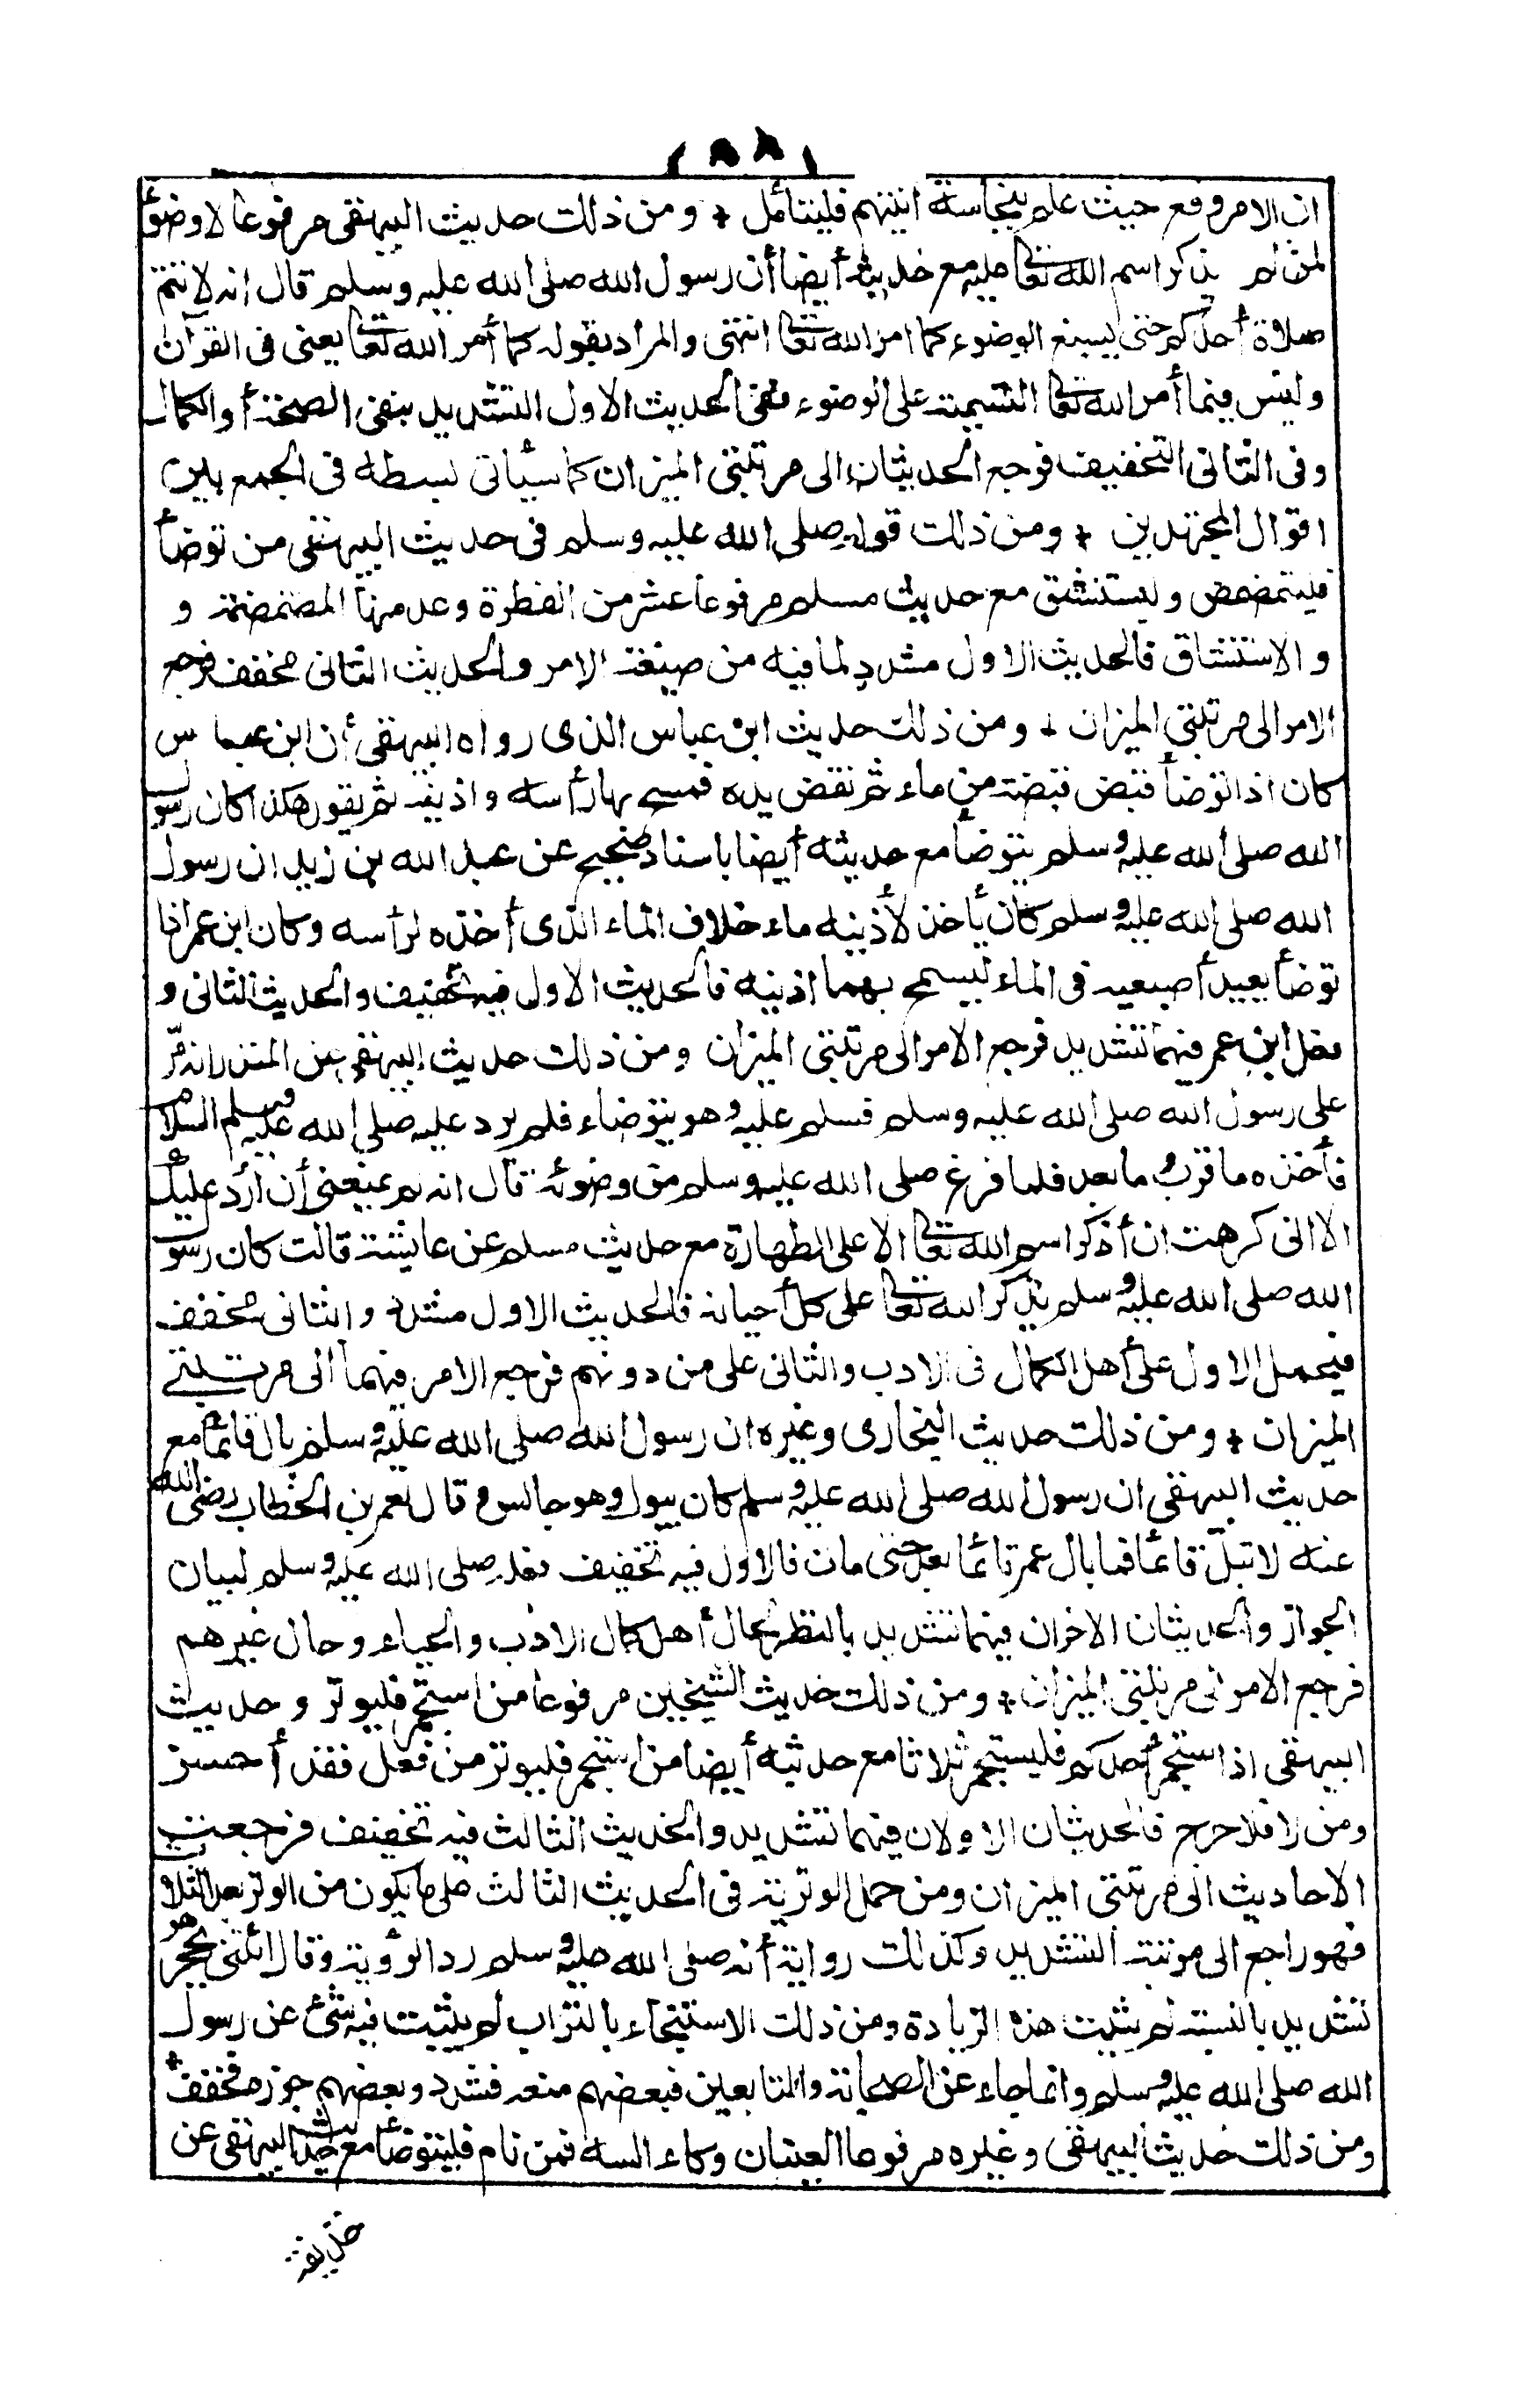 ان الامر وقع حيث علم بنجاسة انيتهم فليتأمل + ومن ذلك حديث البيهقى مرفوعا لا وضوأ
لمن لم يذكر اسم الله تعالى عليه مع حديثه أيضا أن رسول الله صلى الله عليه وسلم قال انه لا تتم
صلاة أحدكم حتى يسبغ الوضوء كما امر الله تعالى انتهى والمراد بقوله كما أمر الله تعالى يعنى فى القرآن
وليس فيما أمر الله تعالى التسمية على الوضوء ففى الحديث الاول التشديد بنفى الصحة أو الكمال
وفى الثانى التخفيف فرجع الحديثان الى مرتبتى الميزان كما سيأتى بسطه فى الجمع بين
اقوال المجتهدين + ومن ذلك قوله صلى الله عليه وسلم فى حديث البيهقى من توضأ
فليتمضمض وليستنشق مع حديث مسلم مرفوعا عشر من الفطرة وعد منها المضمضة و
والاستنشاق فالحديث الاول مشدد لما فيه من صيغة الامر والحديث الثانى مخفف فرجع
الامر الى مرتبتى الميزان + ومن ذلك حديث ابن عباس الذى رواه البيهقى أن ابن عباس
كان اذا توضأ قبض قبضة من ماء ثم نفض يده فمسح بها رأسه واذنيه ثم يقول هكذا كان رسول
الله صلى الله عليه وسلم يتوضأ مع حديثه أيضا باسناد صحيح عن عبد الله بن زيد ان رسول
الله صلى الله عليه وسلم كان يأخذ لأذنيه ماء خلاف الماء الذى أخذه لرأسه وكان ابن عمر اذا
توضأ يعيد أصبعيه فى الماء ليمسح بهما اذنيه فالحديث الاول فيه تخفيف والحديث الثانى و
فعل ابن عمر فيهما تشديد فرجع الامر الى مرتبتى الميزان ومن ذلك حديث البيهقى عن المنذر انه مرّ
على رسول الله صلى الله عليه وسلم فسلم عليه وهو يتوضاء فلم يرد عليه صلى الله عليه وسلم السلام
فأخذه ما قرب وما بعد فلما فرغ صلى الله عليه وسلم من وضوئه قال انه لم يمنعنى أن أرد عليك
الا انى كرهت ان أذكر اسم الله تعالى الا على الطهارة مع حديث مسلم عن عايشة قالت كان رسول
الله صلى الله عليه وسلم يذكر الله تعالى على كل أحيانه فالحديث الاول مشدد والثانى مخفف
فيحمل الاول على أهل الكمال فى الادب والثانى على من دونهم فرجع الامر فيهما الى مرتبتى
الميزان + ومن ذلك حديث البخارى وغيره ان رسول الله صلى الله عليه وسلم بال قائما مع
حديث البيهقى ان رسول الله صلى الله عليه وسلم كان يبول وهو جالس و قال لعمر بن الخطاب رضى الله
عنه لا تبل قائما فما بال عمر قائما بعد حتى مات فالاول فيه تخفيف فعله صلى الله عليه وسلم لبيان
الجواز والحديثان الاخران فيهما تشديد بالنظر لحال أهل كمال الادب والحياء وحال غيرهم
فرجع الامر الى مرتبتى الميزان + ومن ذلك حديث الشيخين مرفوعا من استجمر فليوتر و حديث
البيهقى اذا استجمر أحدكم فليستجمر ثلاثا مع حديثه أيضا من استجمر فليوتر من فعل فقد أحسن
ومن لا فلا حرج فالحديثان الاولان فيهما تشديد والحديث الثالث فيه تخفيف فرجعت
الاحاديث الى مرتبتى الميزان ومن حمل الوترية فى الحديث الثالث على ما يكون من الوتر بعد الثلاث
فهو راجع الى مرتبة التشديد وكذلك رواية أنه صلى الله عليه وسلم رد الروية وقال ائتنى بحجر هو
تشديد بالنسبة لم يثبت هذه الزيادة ومن ذلك الاستنجاء بالتراب لم يثبت فيه شئ عن رسول
الله صلى الله عليه وسلم وانما جاء عن الصحابة والتابعين فبعضهم منعه فشدد وبعضهم جوزه فخفف +
ومن ذلك حديث البيهقى وغيره مرفوعا العينان وكاء السه فمن نام فليتوضأ مع حديث البيهقى عن
حذيفة